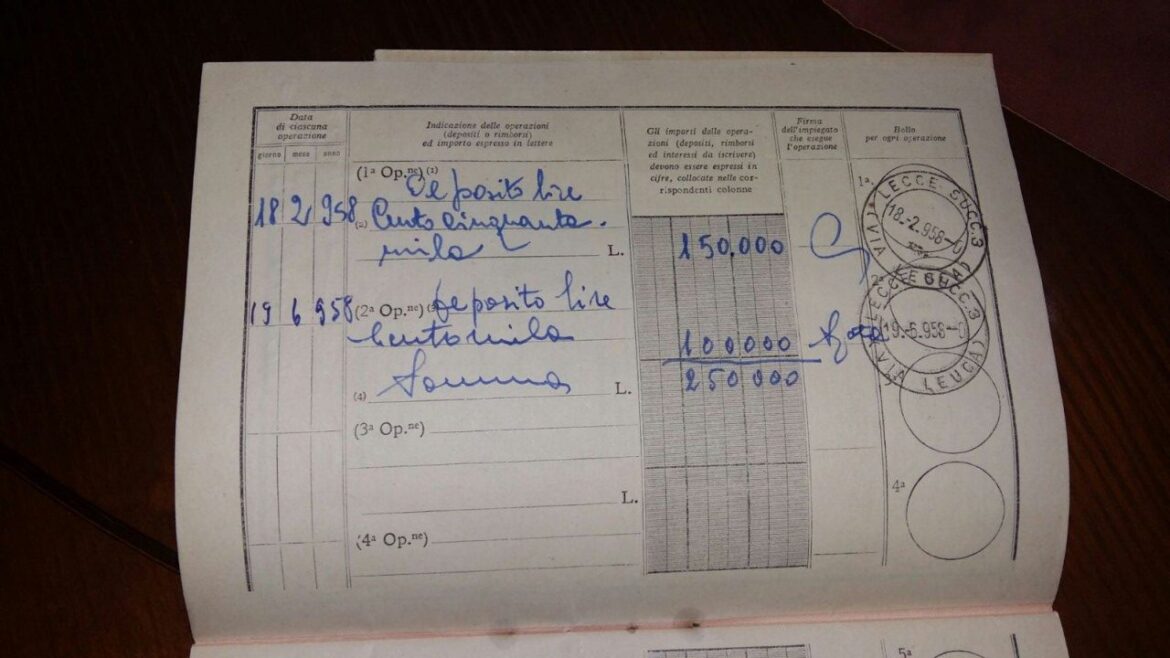 Data
di ciascuna
operazione
giorno mese anno
Indicazione delle operazioni
(depositi o rimborsi)
ed importo espresso in lettere
Gli importi delle opera-
zioni (depositi, rimborsi
ed interessi da iscrivere)
devono essere espressi in
cifre, collocate nelle cor-
rispondenti colonne
Firma
dell'impiegato
che esegue
l'operazione
Bollo
per ogni operazione
(1ª Op.ne) (1) Deposito lire
18 2 958 (2) Cento cinquanta-
mila L. 150.000
1ª
LECCE SUCC. 3
18.-2.958-0
(VIA LEUCA)
19 6 958 (2ª Op.ne) Deposito lire
centomila 100000
2ª
LECCE SUCC. 3
19.-6.958-0
(VIA LEUCA)
(4) Somma L. 250000
(3ª Op.ne)
L.
4ª
(4ª Op.ne)
5ª